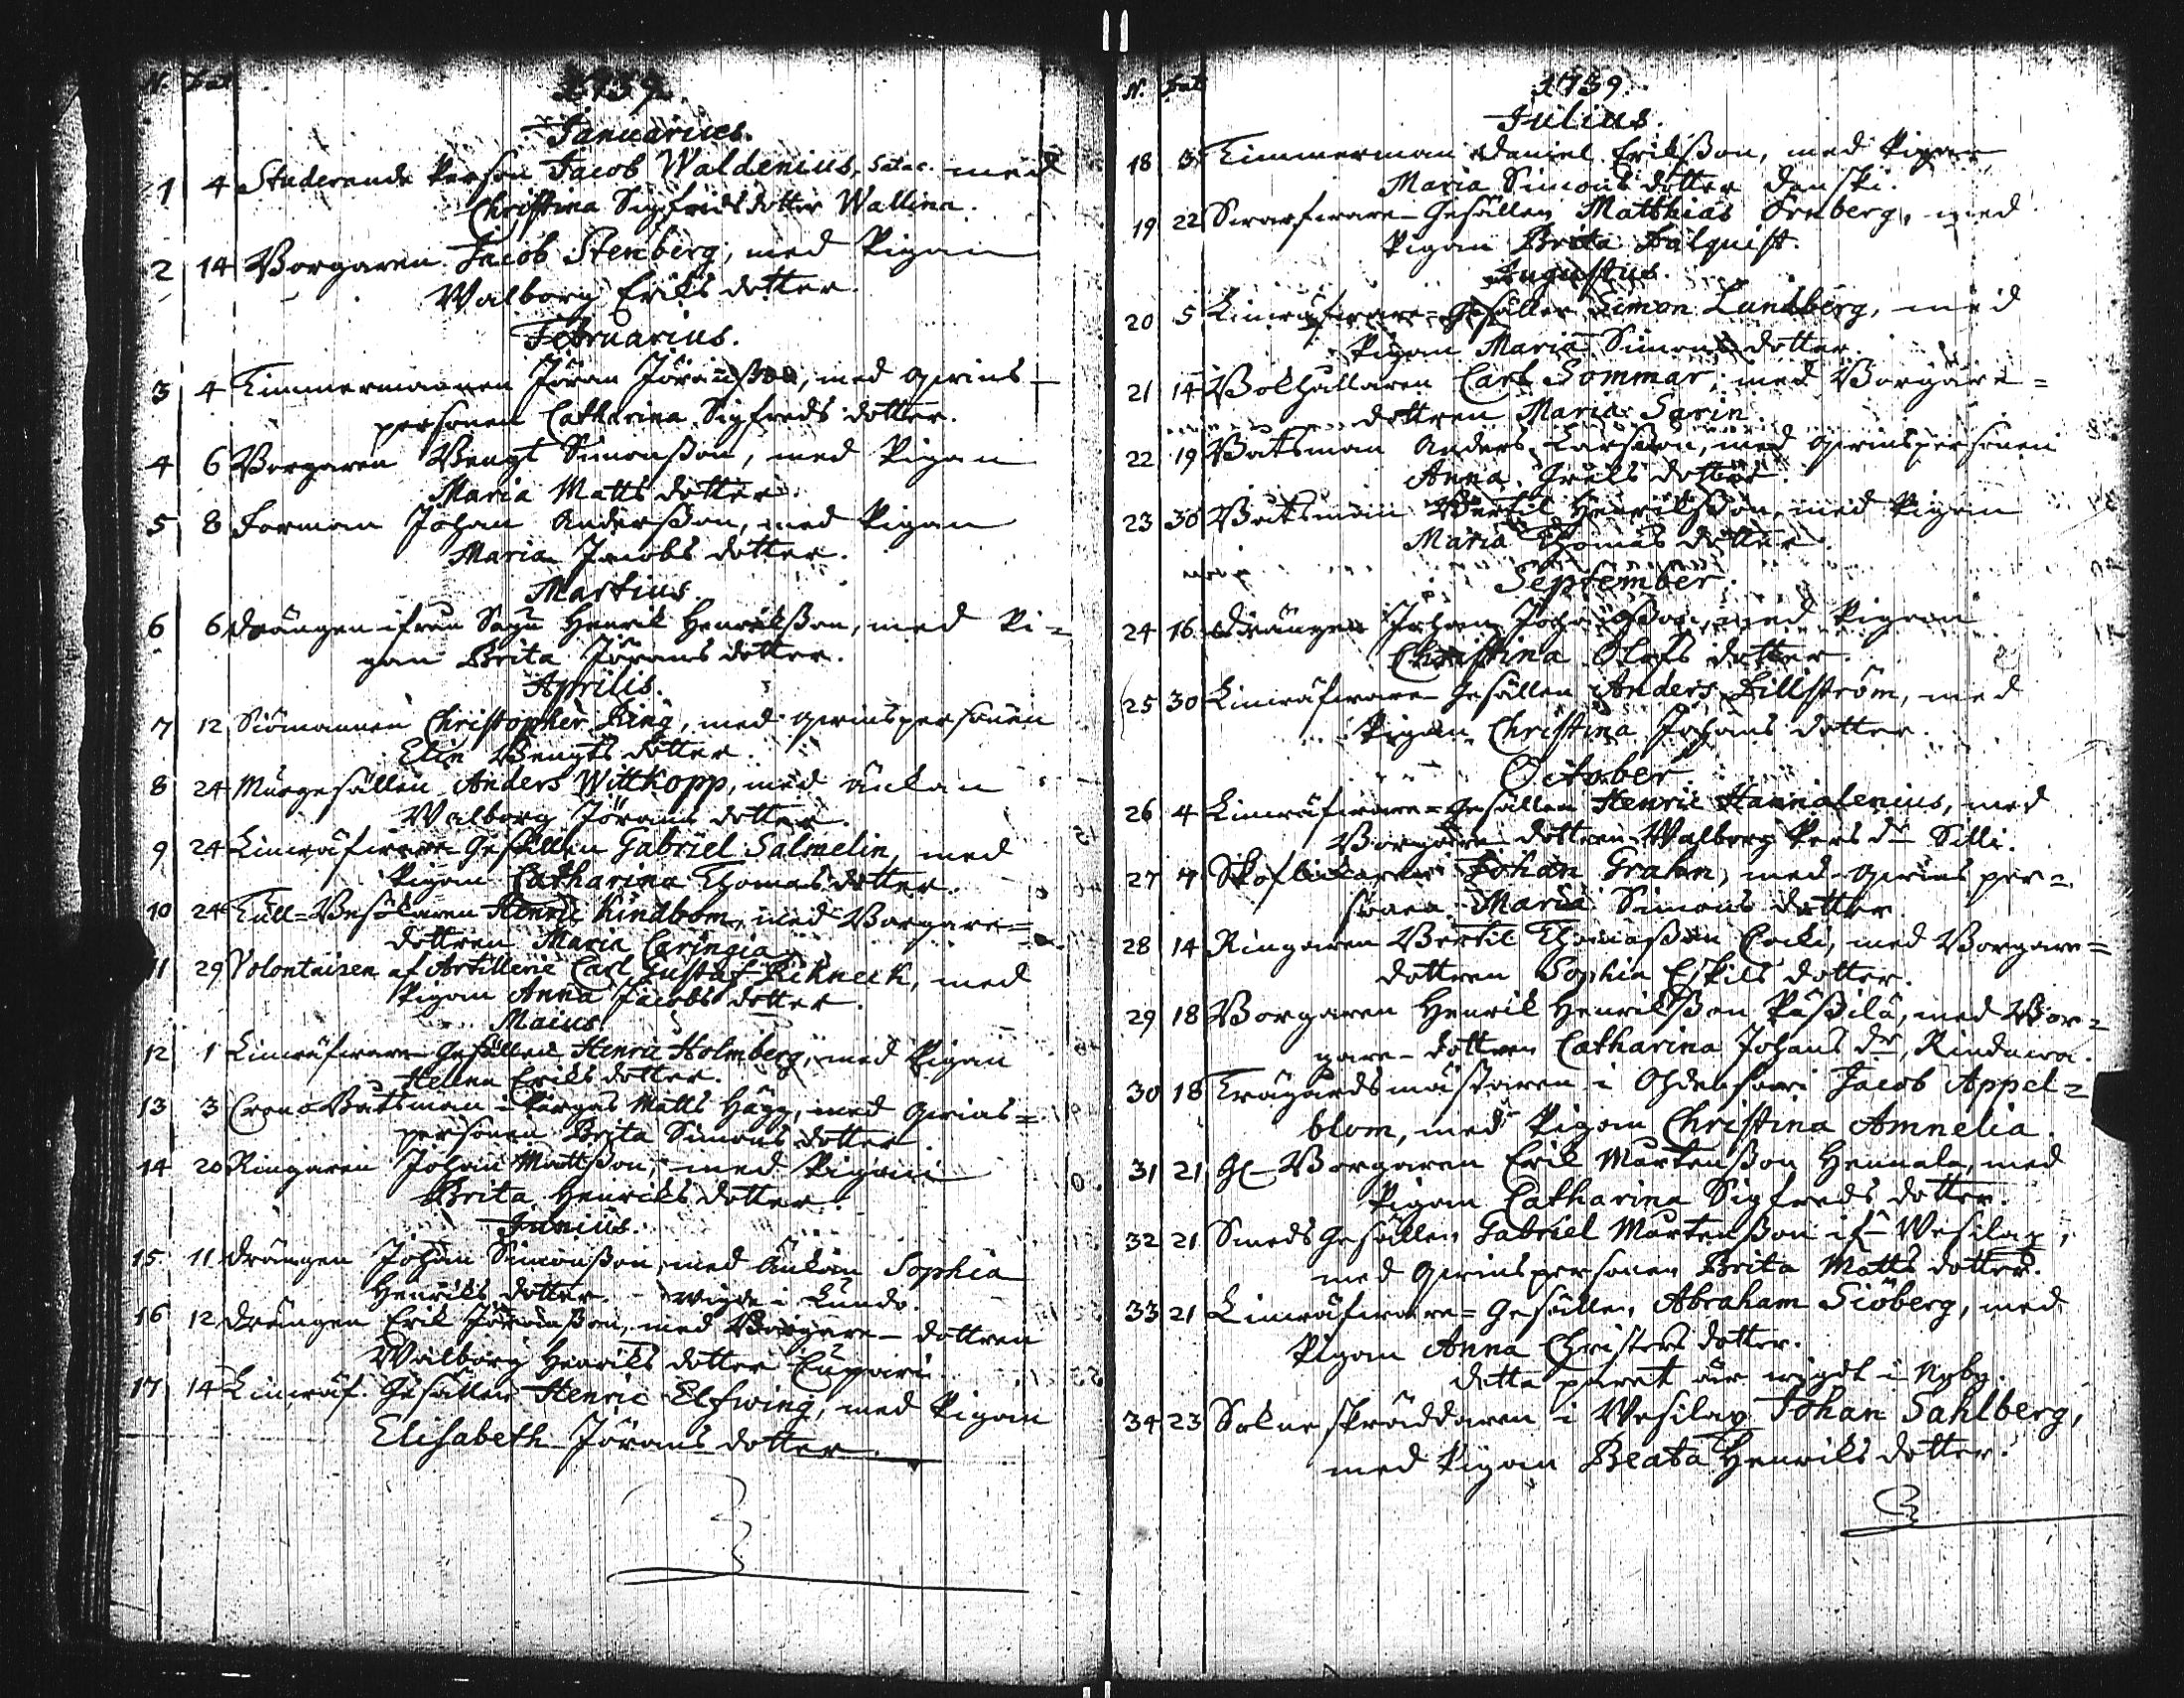 N. Dat
1739.
Januarius.
1 4 Studerande Person Jacob Waldenius, Satac. med
Christina Sigfridsdotter Wallina.
2 14 Borgaren Jacob Stenberg, med Pigan
Walborg Eriks dotter.
Februarius.
3 4 Timmermannen Jöran Jöransson, med qwins-
personen Catharina Sigfreds dotter.
4 6 Borgaren Bengt Simonsson, med Pigan
Maria Matts dotter.
5 8 Forman Johan Andersson, med Pigan
Maria Jacobs dotter.
Martius.
6 6 Drängen ifrån Sagu Henrik Henriksson, med Pi=
gan Brita Jörans dotter.
Aprilis.
7 12 Siömannen Christopher King, med qwinspersonen
Elin Bengts dotter.
8 24 Murgesällen Anders Wittkopp, med änkan
Walborg Jörans dotter.
9 24 Linwäfware Gesällen Gabriel Salmelin, med
Pigan Catharina Thomas dotter.
10 24 Tull=Besökaren Henric Kindbom, med Borgare=
dottren Maria Caringia.
11 29 Volontairen af Artillerie Carl Gustaf, med
Pigan Anna Jacobs dotter.
Maius.
12 1 Linwäfware Gesällen Henric Holmberg, med Pigan
Helena Eriks dotter.
13 3 Crono Båtsman i Pargas Matts Hägg, med qwins=
personen Brita Simons dotter.
14 20 Ringaren Johan Mattsson, med Pigan
Brita Henriks dotter.
Junius.
15 11 Drängen Johan Simonsson, med Änkan Sophia
Henriks dotter. wigde i Lundo.
16 12 Drängen Erik Jöransson, med Borgare-dottren
Walborg Henriks dotter Cupari.
17 14 Linwäf. Gesällen Henric Elfwing, med Pigan
Elisabeth Jörans dotter.
N. Dat
1739.
Julius.
18 Timmerman Daniel Eriksson, med Pigan
Maria Simons dotter Danski.
19 22 Swarfware-Gesällen Matthias Ornberg, med
Pigan Brita Falquist.
Augustus.
20 5 Linwäfware-Gesällen Simon Lundberg, med
Pigan Maria Simons dotter.
21 14 Bokhållaren Carl Sommar, med Borgare=
dottren Maria Sarin.
22 19 Båtsman Anders Larsson, med qwinspersonen
Anna Grels dotter.
23 30 Båtsman Bertil Henriksson, med Pigan
Maria Thomas dotter.
September.
24 16 Drängen Johan Johansson, med Pigan
Christina Olofs dotter.
25 30 Linwäfware-Gesällen Anders Lillström, med
Pigan Christina Johans dotter.
October.
26 4 Linwäfware=Gesällen Henric Hannalenius, med
Borgare dottren Walborg Pers dr Silli.
27 7 Skoflickaren Johan Grahn, med qwins per=
sonen Maria Simons dotter.
28 14 Ringaren Bertil Thomasson Cocki, med Borgare=
dottren Sophia Eskils dotter.
29 18 Borgaren Henrik Henriksson Påssilä, med Bor=
gare-dottren Catharina Johans dr, Rindawa.
30 18 Trägårdsmästaren i Ohdensaari Jacob Appel=
blom, med Pigan Christina Amnelia.
31 21 Gl-Borgaren Erik Mårtensson Hennala, med
Pigan Catharina Sigfreds dotter.
32 21 Smeds Gesällen Gabriel Mårtensson if- Wesilax,
med qwinspersonen Brita Matts dotter.
33 21 Linwäfware=Gesällen Abraham Siöberg, med
Pigan Anna Christers dotter.
Detta paret är wigdt i Nyby.
34 23 Sokneskräddaren i Wesilax Johan Sahlberg,
med Pigan Beata Henriks dotter.